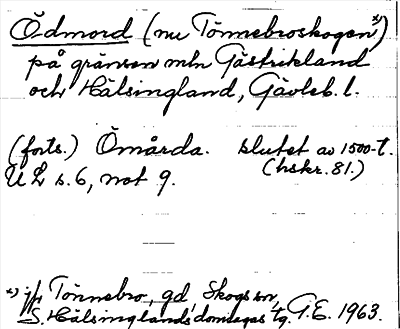 Ödmord (nu Tönnebroskogen x))
på gränsen mln Gästrikland
och Hälsingland, Gävleb. l.
(forts.) Ömårda. slutet av 1500-t.
(hskr. 81.)
U L s. 6, not 9.
x) jfr Tönnebro, gd, Skogs sn,
S. Hälsinglands domsagas tg. G.E. 1963.